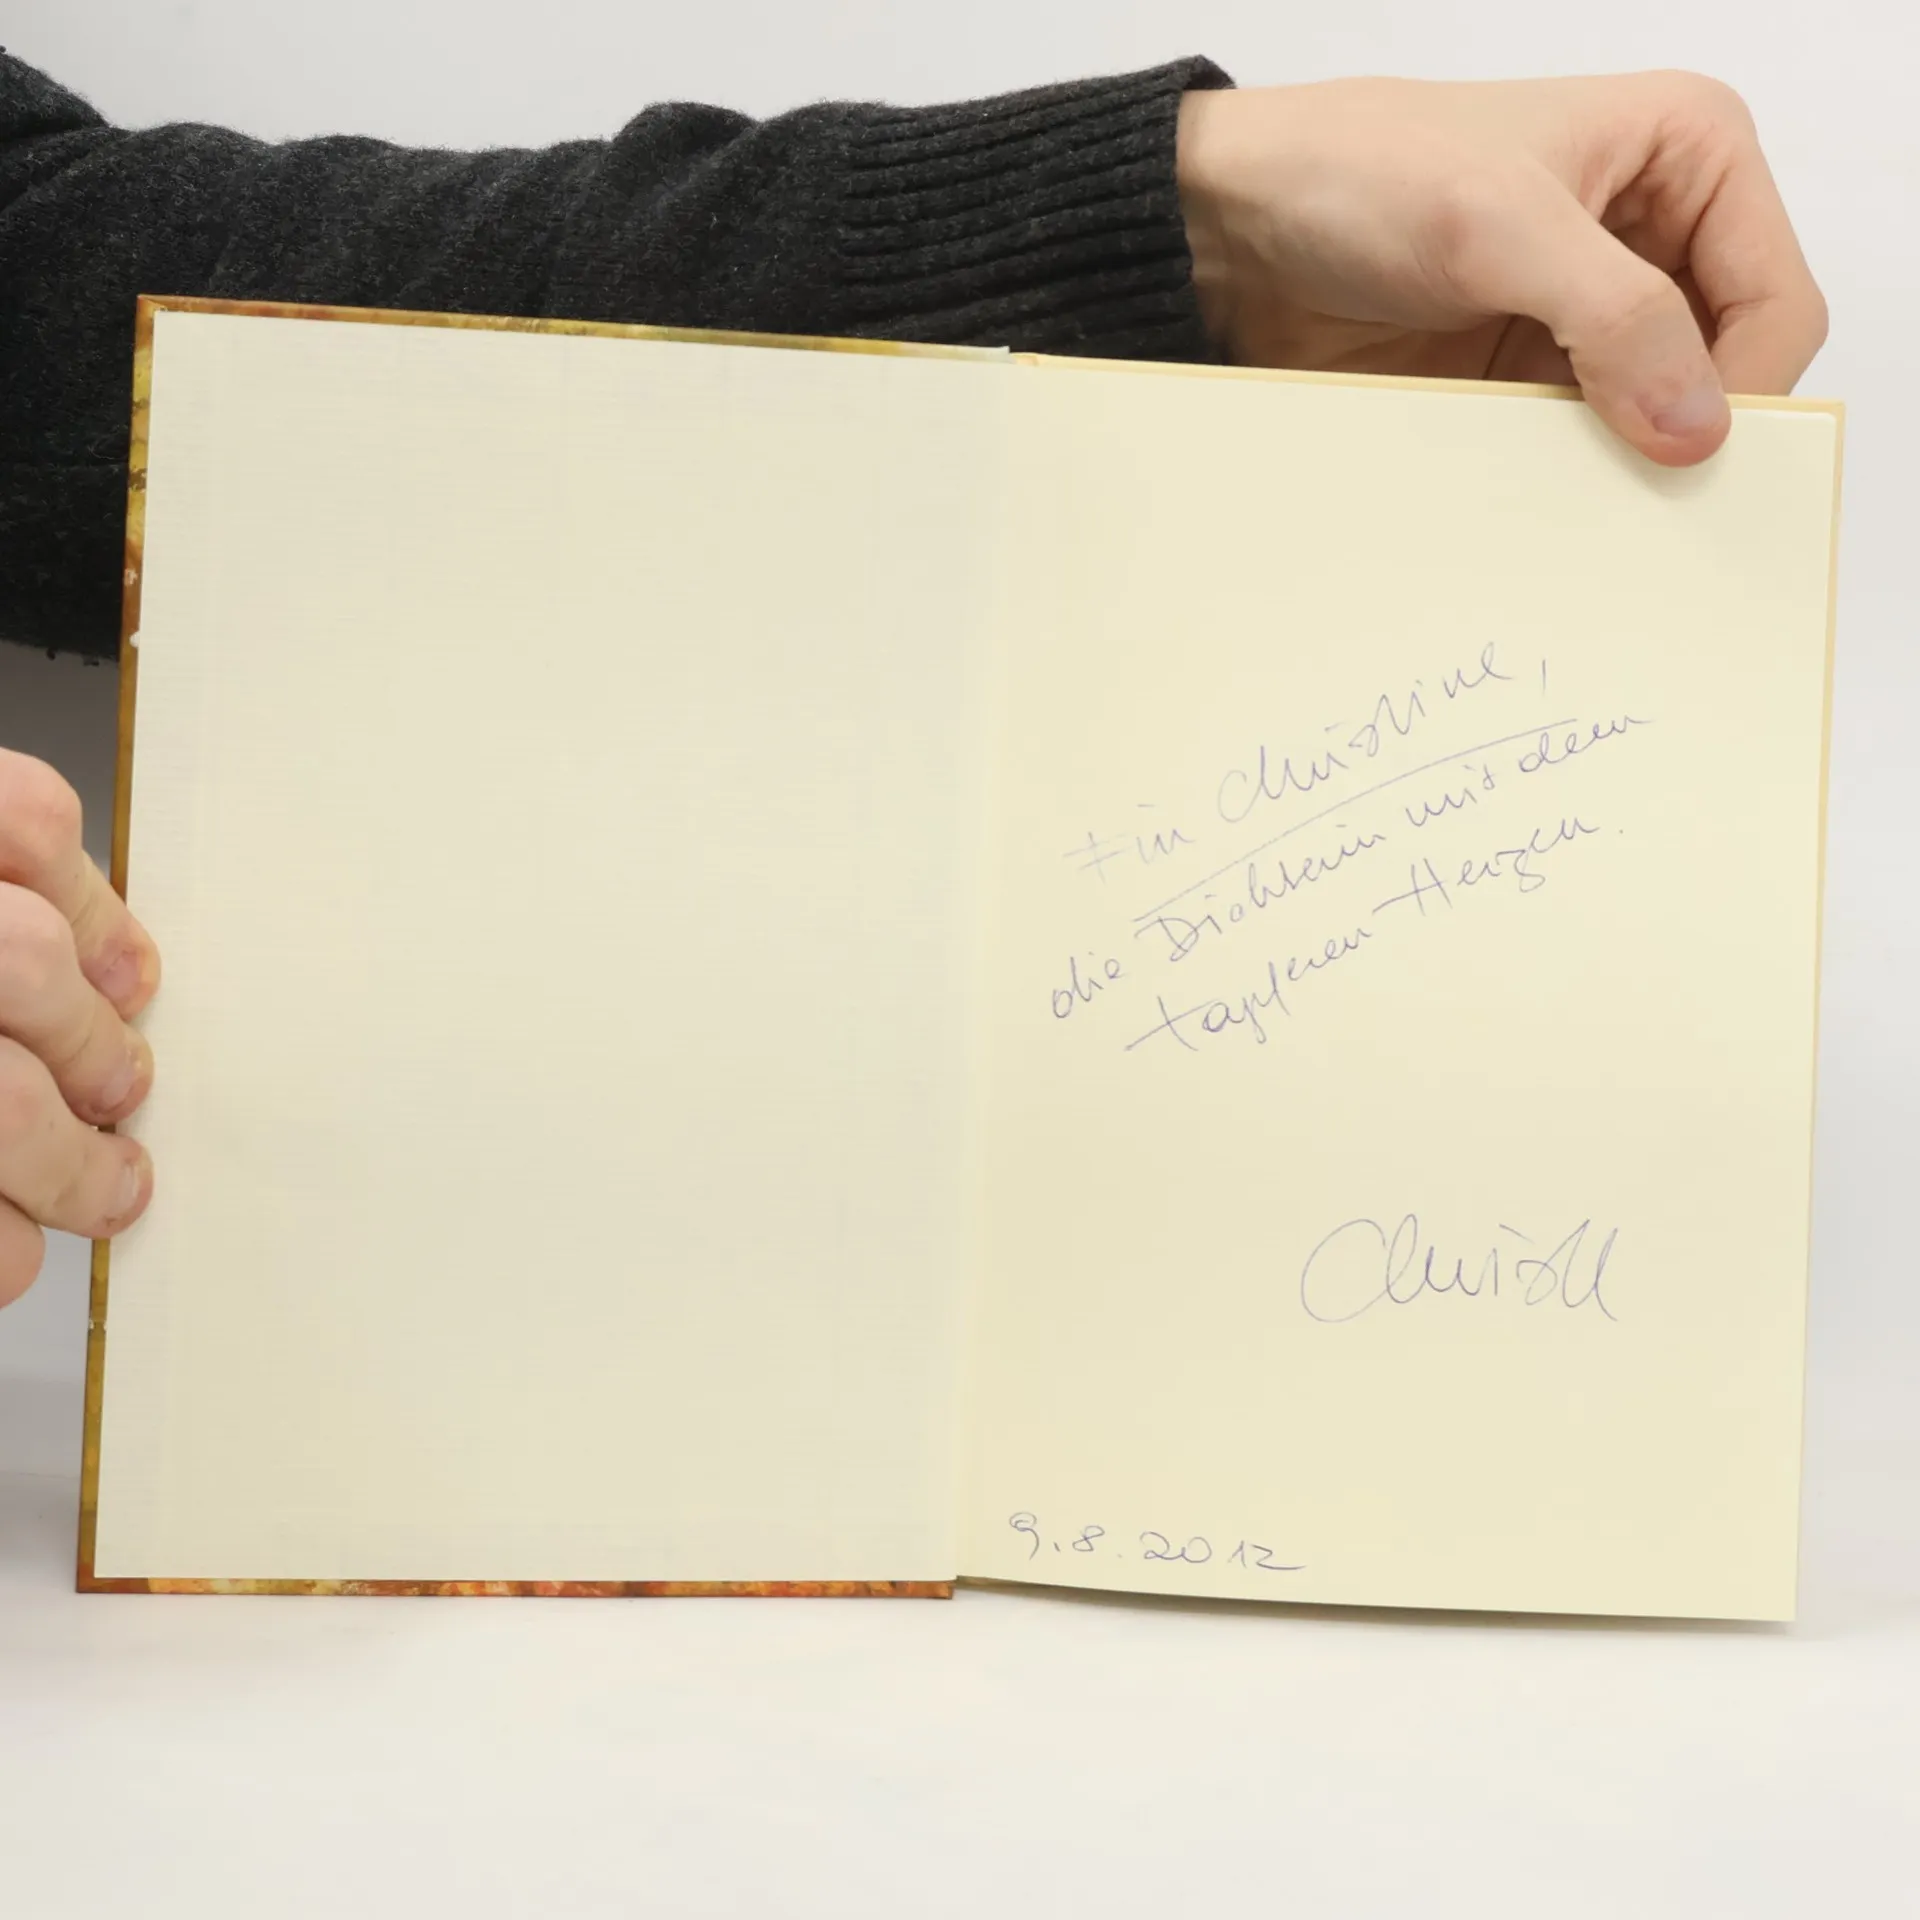 Für Christine,
die Dichterin mit dem
tapferen Herzen.
9.8.2012